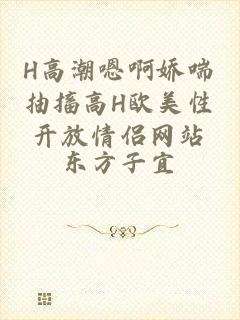 H高潮嗯啊娇喘
抽搐高H欧美性
开放情侣网站
东方子宜